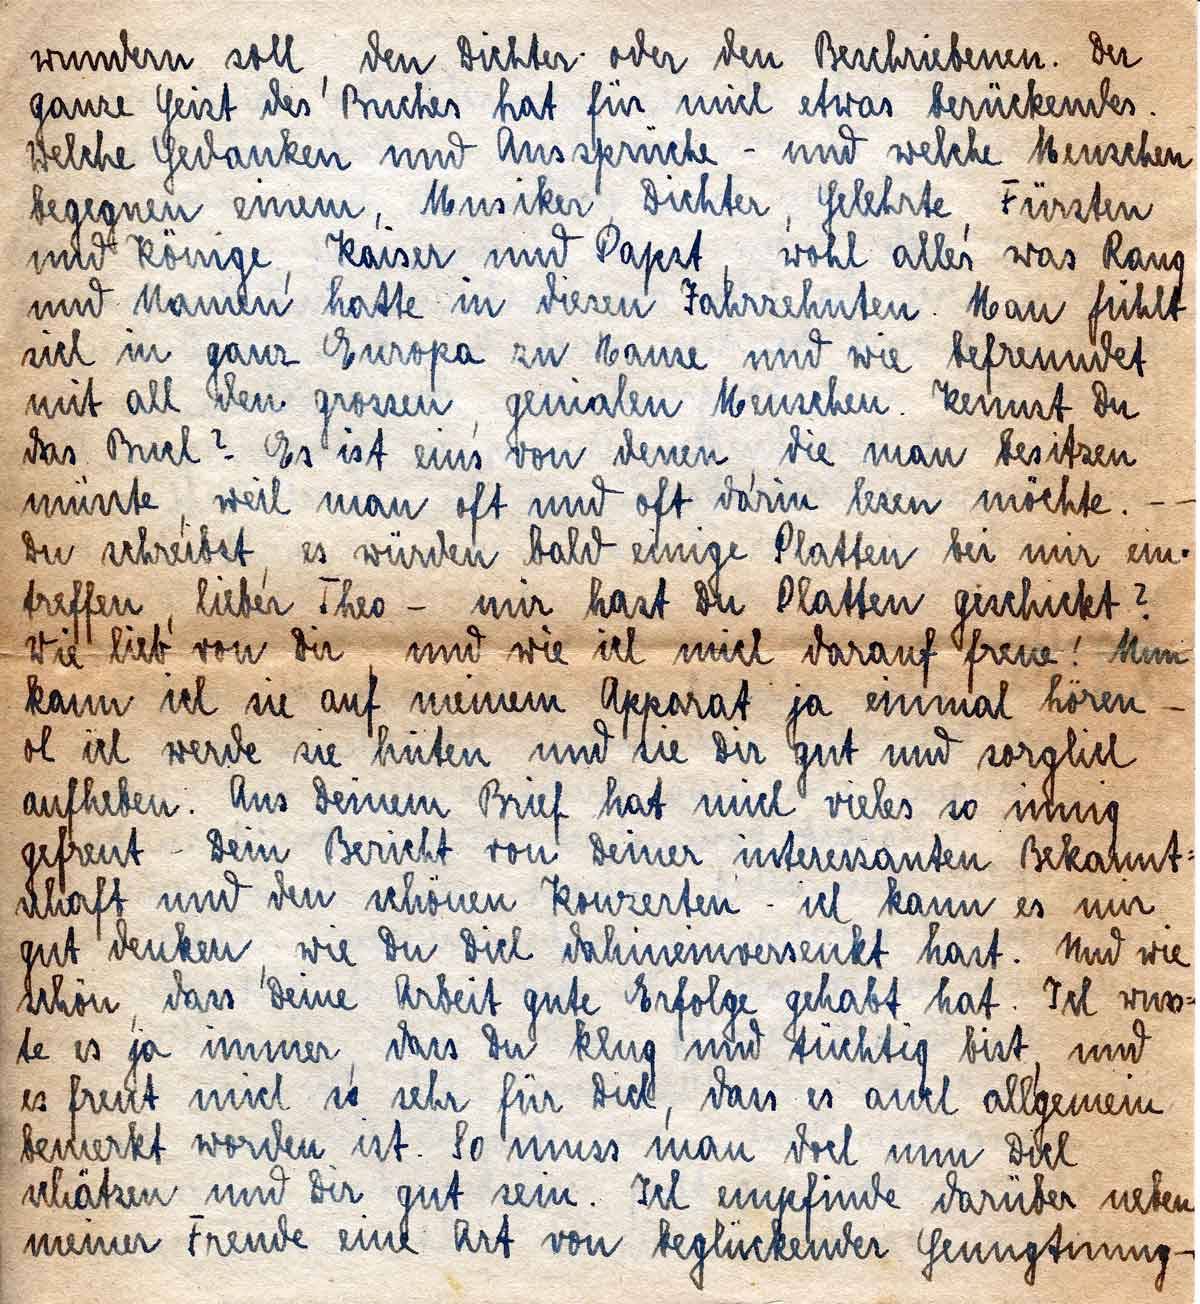 wundern soll, den Dichter oder den Beschriebenen. Der
ganze Geist des Buches hat für mich etwas berückendes.
Welche Gedanken und Aussprüche - und welche Menschen
begegnen einem, Musiker, Dichter, Gelehrte, Fürsten
und Könige, Kaiser und Papst, wohl alles was Rang
und Namen hatte in diesen Jahrzehnten. Man fühlt
sich in ganz Europa zu Hause und wie befreundet
mit all den grossen, genialen Menschen. Kennst Du
das Buch? - Es ist eins von denen, die man besitzen
müsste, weil man oft und oft darin lesen möchte. - -
Du schreibst, es würden bald einige Platten bei mir ein-
treffen, lieber Theo - mir hast Du Platten geschickt?
Wie lieb von Dir, und wie ich mich darauf freue! Nun
kann ich sie auf meinem Apparat ja einmal hören -
oh ich werde sie hüten und sie Dir gut und sorglich
aufheben. Aus Deinem Brief hat mich vieles so innig
gefreut - Dein Bericht von Deiner interessanten Bekannt=
schaft und den schönen Konzerten - ich kann es mir
gut denken, wie Du Dich dahineinversenkt hast. Und wie
schön, dass Deine Arbeit gute Erfolge gehabt hat. Ich wuss=
te es ja immer, dass Du klug und tüchtig bist, und
es freut mich so sehr für Dich, dass es auch allgemein
bemerkt worden ist. So muss man doch nun Dich
schätzen und Dir gut sein. Ich empfinde darüber neben
meiner Freude eine Art von beglückender Genugtuung -